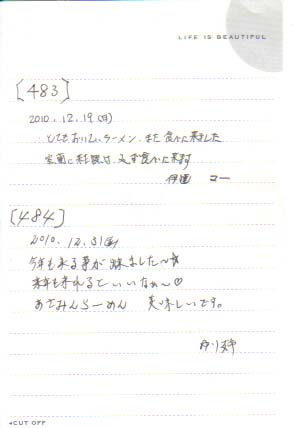 LIFE IS BEAUTIFUL
[483]
2010.12.19(日)
とてもおいしいラーメン、また食べに来ました
に来た際は、必ず食べに来ます
伊
[484]
2010.12.31(金)
今年も来る事が出来ました〜☆
来年も来れるといいなぁ〜♡
あさみんらーめん 美味しいです。
ゆり
◂CUT OFF